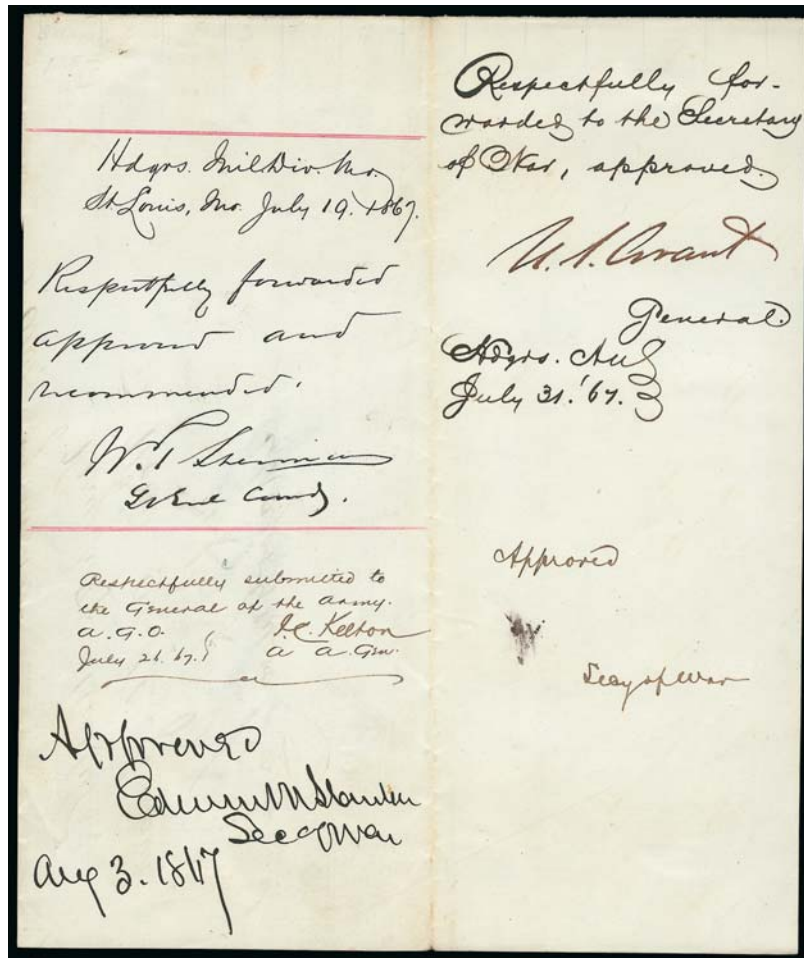 Hdqrs. Mil Div. Mo.
St Louis, Mo. July 19. 1867.
Respectfully forwarded
approved and
recommended.
W. T. Sherman
Lt Genl Comdg.
Respectfully submitted to
the General of the Army.
A. G. O.
July 26. 67.
J. C. Kelton
A. A. Gen.
Approved
Edwin M Stanton
Sec of War
Aug 3. 1867
Respectfully for-
warded to the Secretary
of War, approved.
U. S. Grant
General.
Hdqrs. AUS
July 31.' 67.
Approved
Secy of War